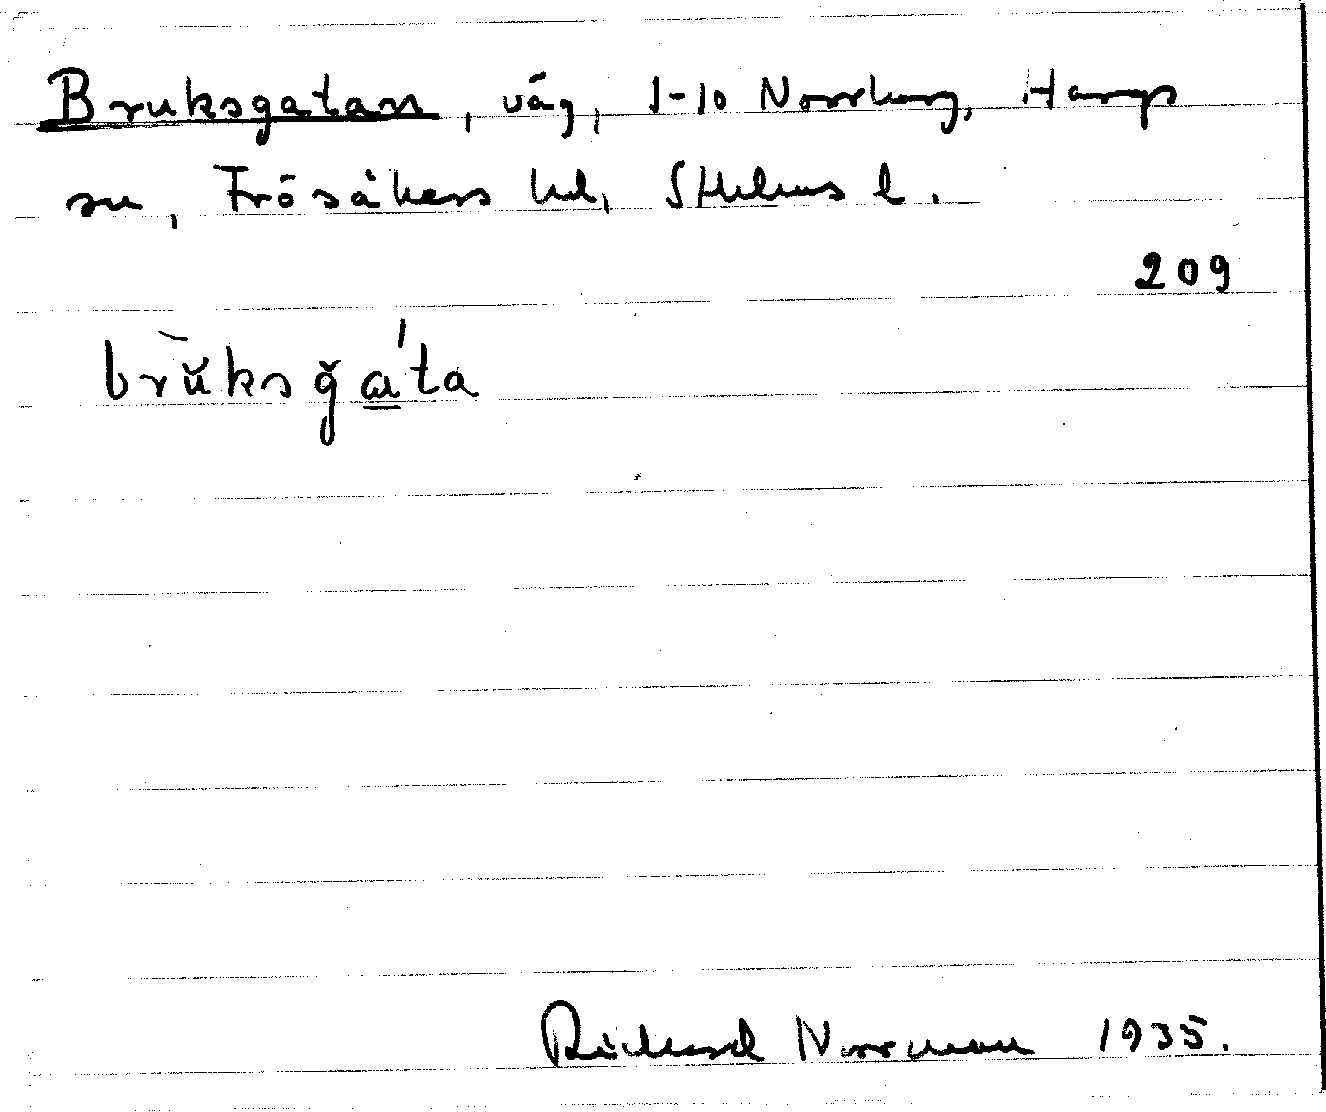 Bruksgatan, väg, 1-10 Norrberg, Hargs
sn, Frösåkers hd, Sthlms l.
209
brŭksğa'ta
Richard Norrman 1935.